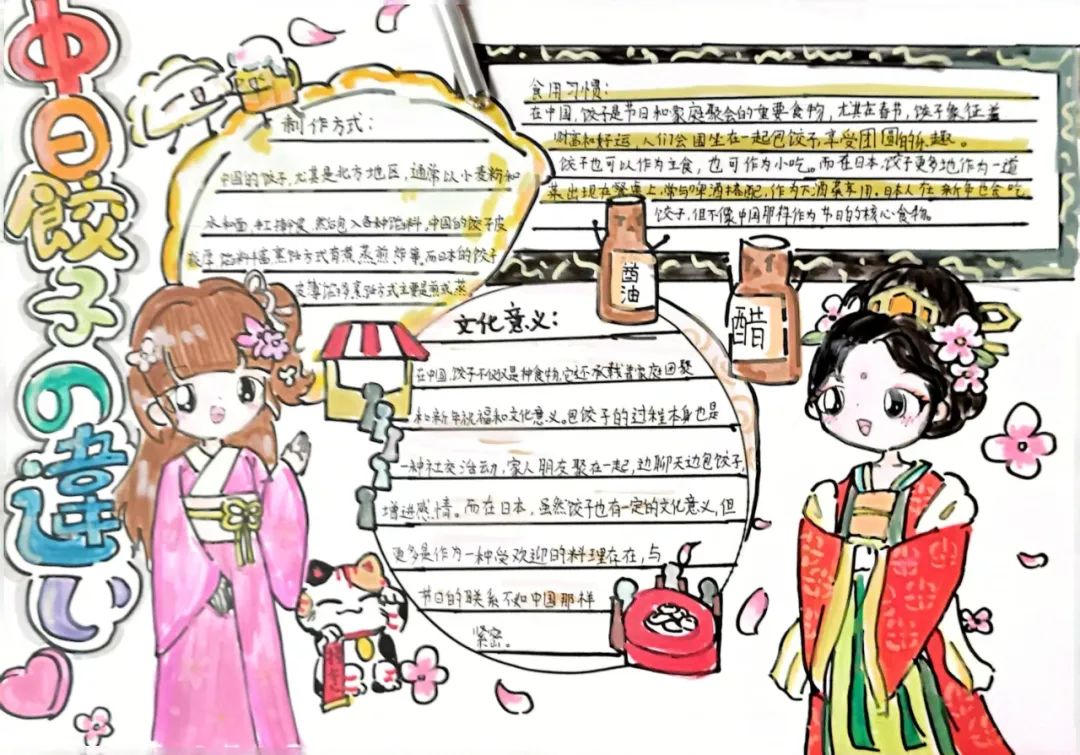 中日餃子の違い
制作方式：
中国的饺子，尤其是北方地区，通常以小麦粉和
水和面，手工擀皮，然后包入各种馅料，中国的饺子皮
较厚，馅料丰富烹饪方式有煮蒸煎炸等。而日本的饺子
皮薄馅多烹饪方式主要是煎或蒸。
食用习惯：
在中国，饺子是节日和家庭聚会的重要食物，尤其在春节，饺子象征着
财富和好运，人们会围坐在一起包饺子，享受团圆的乐趣。
饺子也可以作为主食，也可作为小吃。而在日本，饺子更多地作为一道
菜出现在餐桌上，常与啤酒搭配，作为下酒菜享用。日本人在新年也会吃
饺子，但不像中国那样作为节日的核心食物。
酱油
醋
文化意义：
在中国，饺子不仅仅是种食物，它还承载着家庭团聚
和新年祝福和文化意义。包饺子的过程本身也是
一种社交活动，家人朋友聚在一起，边聊天边包饺子，
增进感情。而在日本，虽然饺子也有一定的文化意义，但
更多是作为一种受欢迎的料理存在，与
节日的联系不如中国那样
紧密。